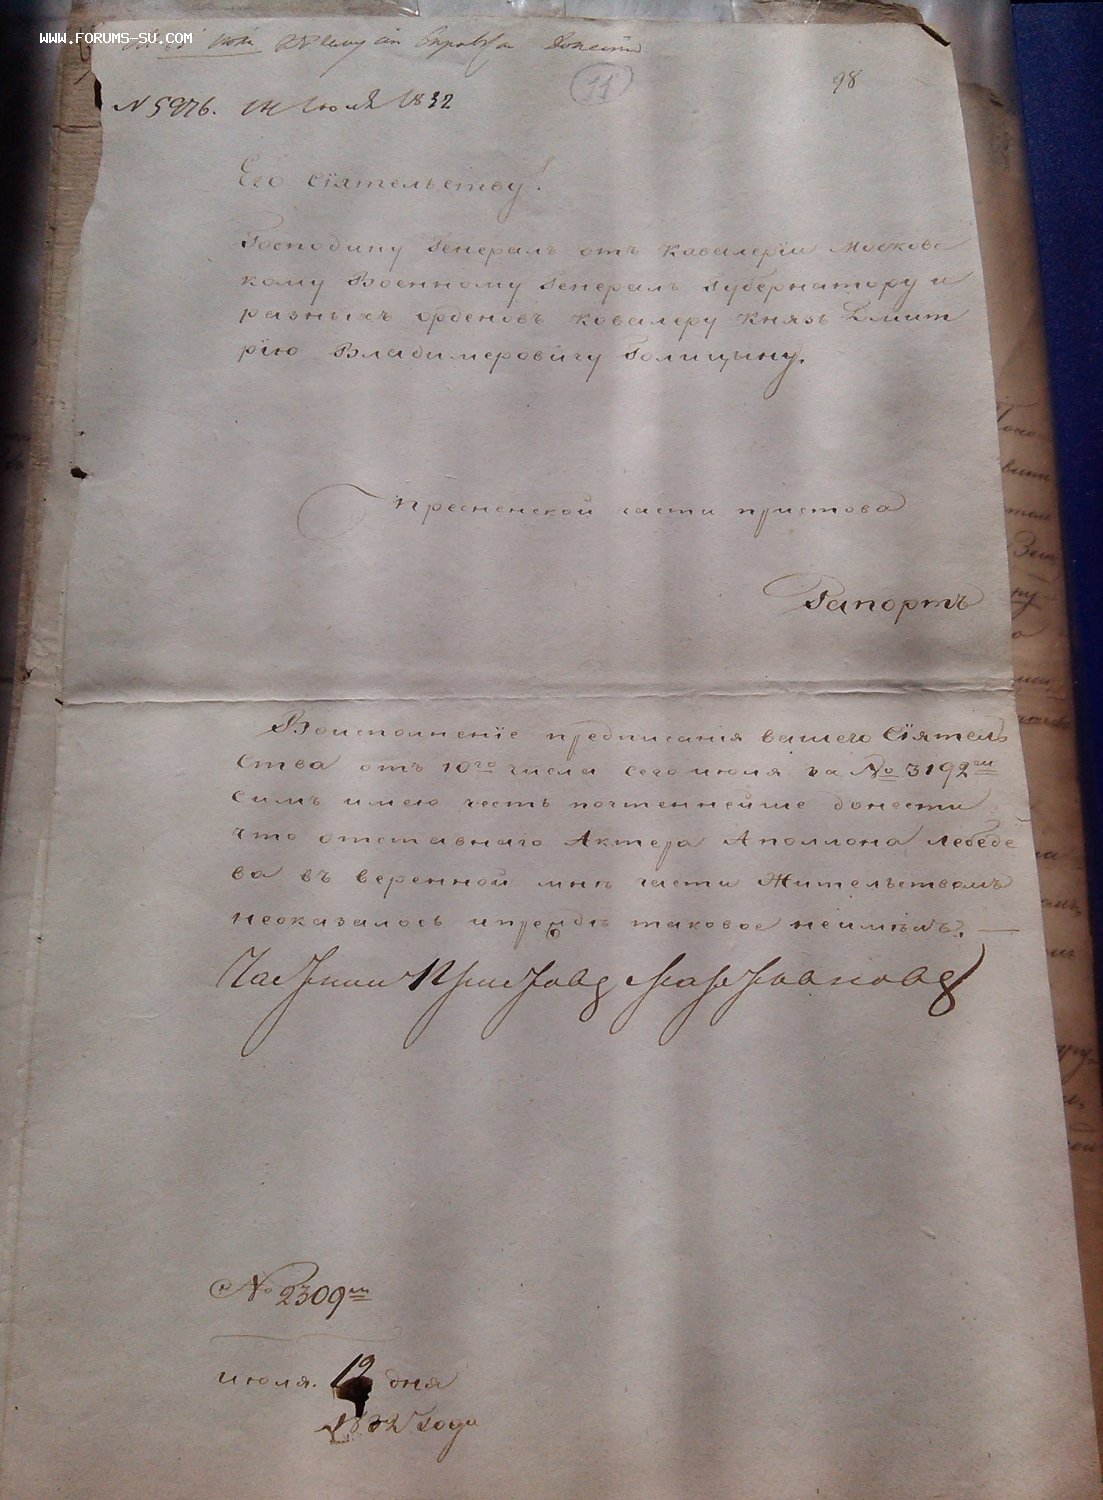 WWW.FORUMS-SU.COM
справку донести
11
98
N 5976. Июля 1832
Его Сіятельству!
Господину Генералъ отъ Кавалеріи Московс
кому Военному Генералъ Губернатору и
разныхъ орденовъ Ковалеру Князь Дмит
рію Владимеровичу Голицыну.
Пресненской части пристова
Рапортъ
Воисполненіе предписанія вашего Сіятель
ства отъ 10го числа сего июля за № 3192мъ
симъ имею честь почтеннейше донести
что отставнаго Актера Аполлона Лебеде
ва въ веренной мне части Жительствомъ
неоказалось ипрежде таковое неимелъ.
Частный Приставъ
№ 2309мъ
июля. 12 дня
1832 Года